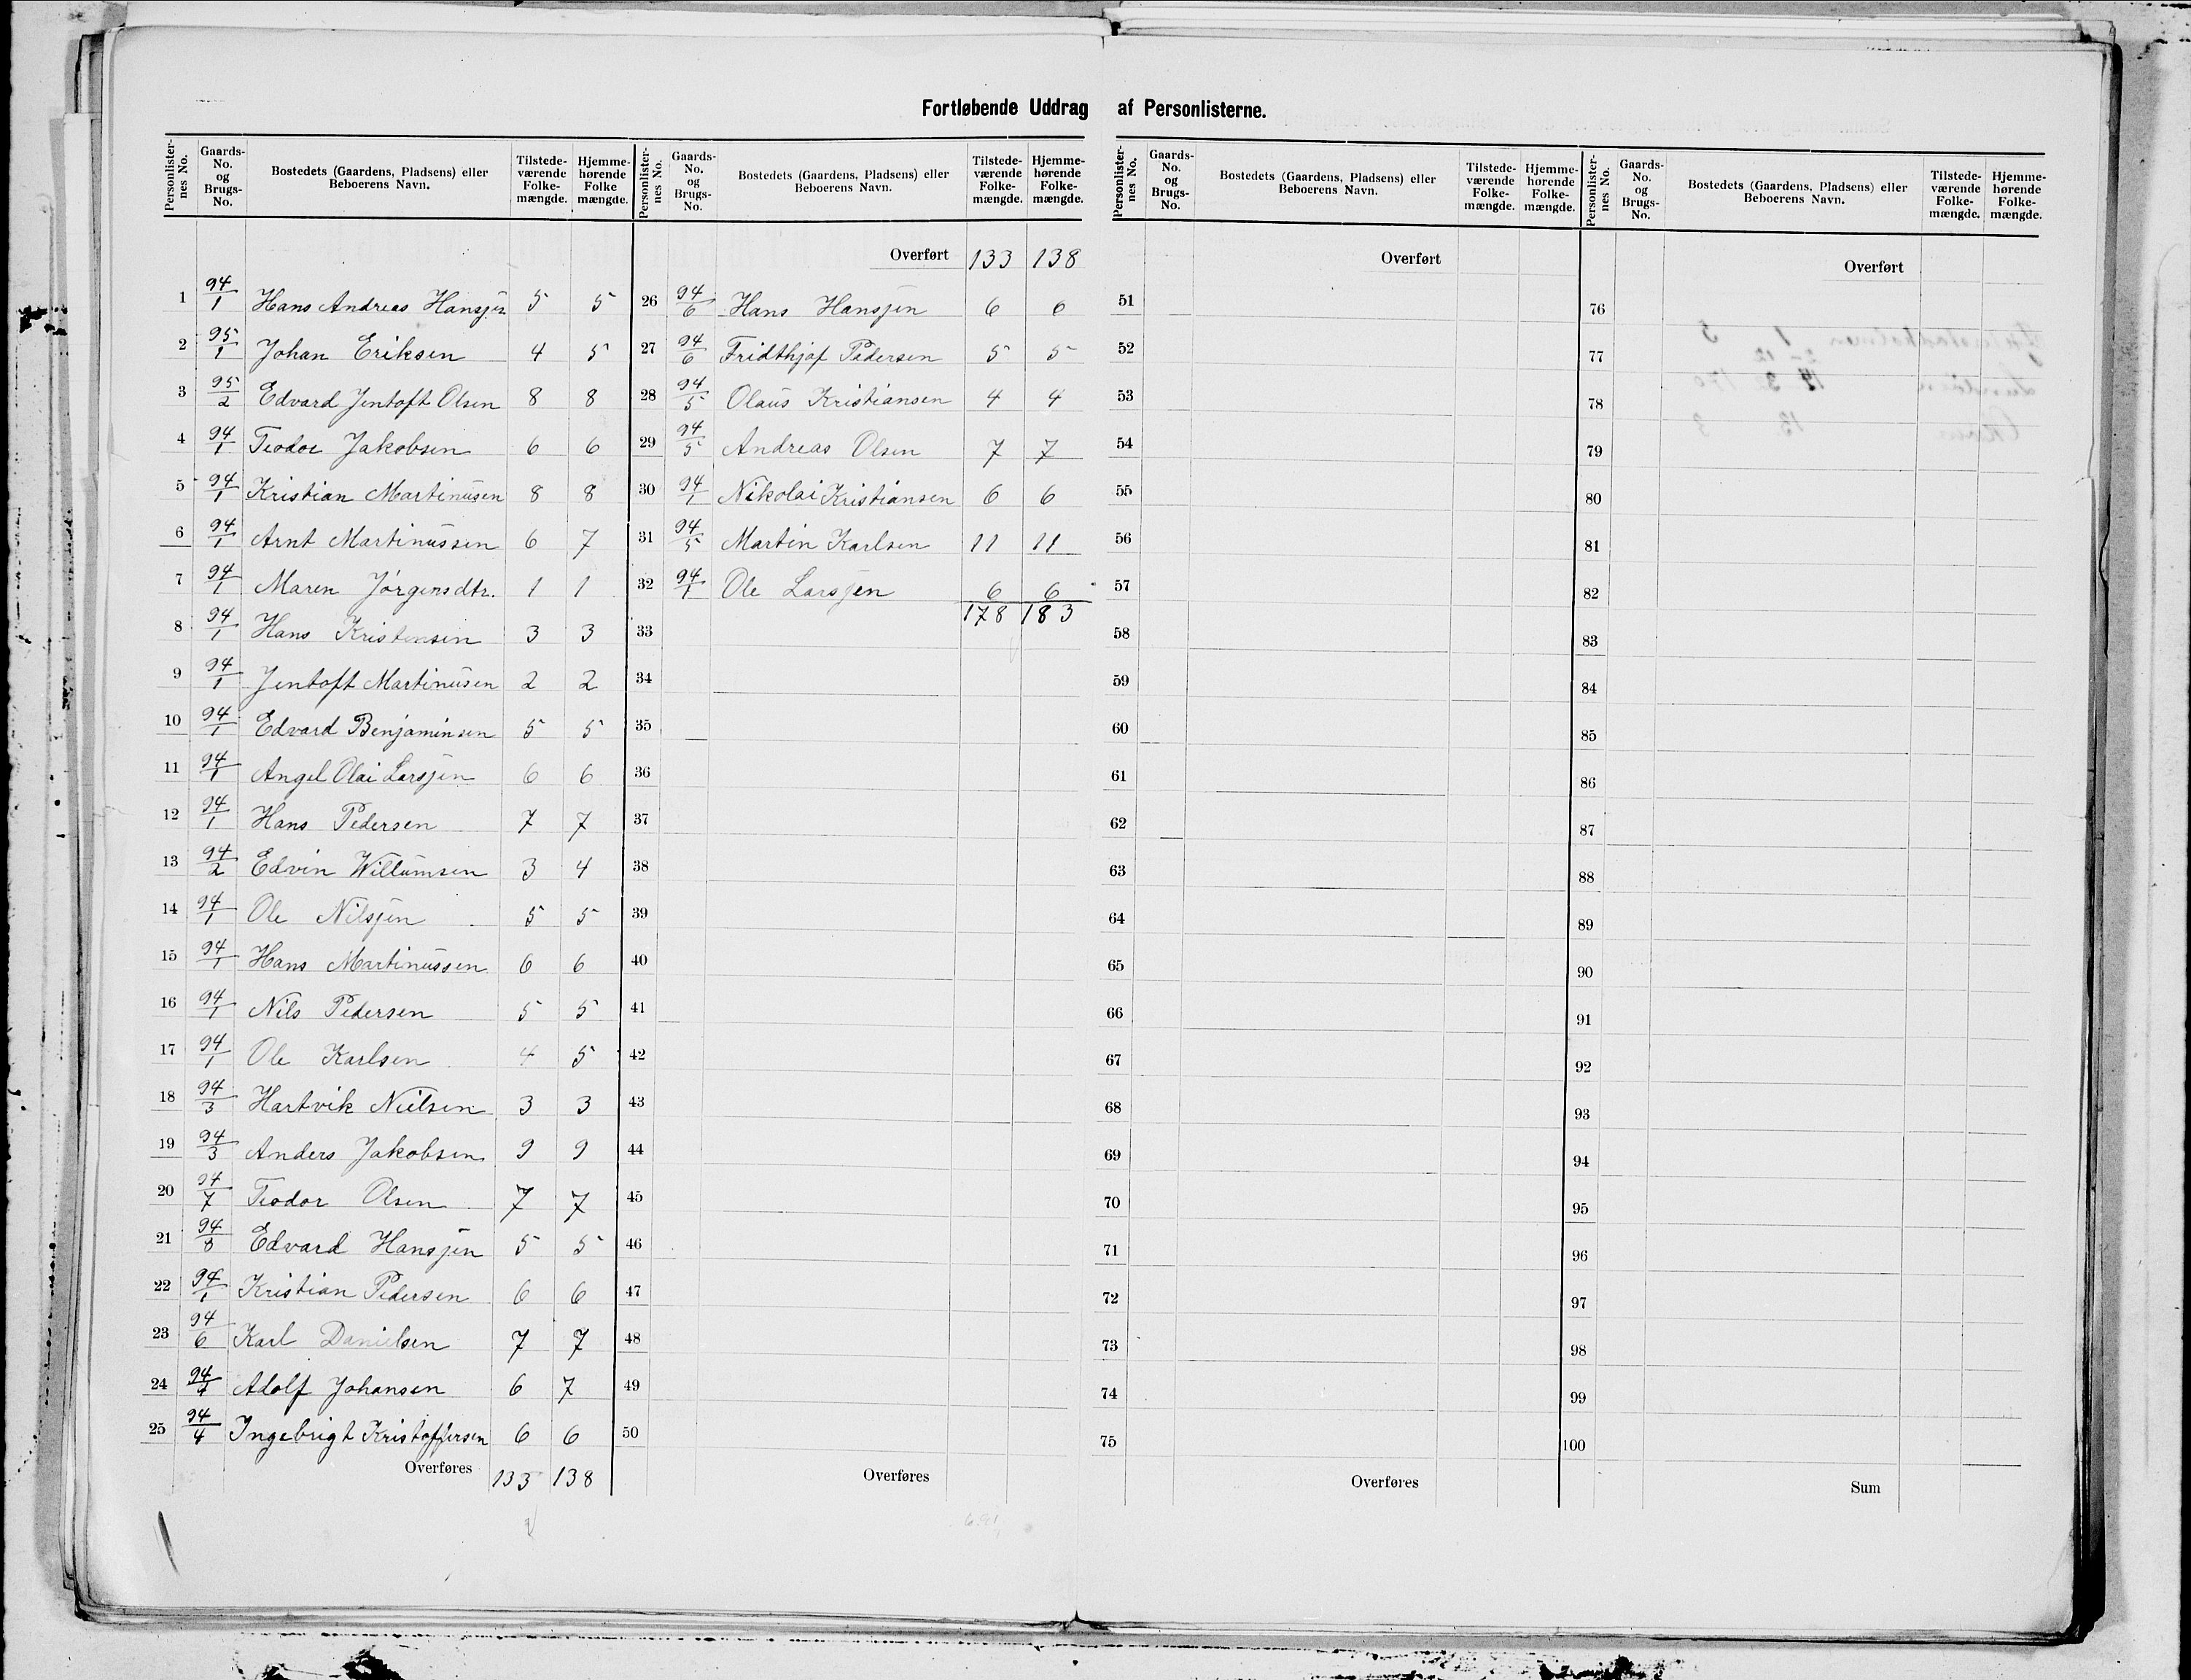 Fortløbende Uddrag af Personlisterne.
Personlister-nes No. Gaards-No. og Brugs-No. Bostedets (Gaardens, Pladsens) eller Beboerens Navn. Tilstede-værende Folke-mængde. Hjemme-hørende Folke mængde.
1 94/1 Hans Andreas Hansjen 5 5
2 95/1 Johan Eriksen 4 5
3 95/2 Edvard Jentoft Olsen 8 8
4 94/1 Teodor Jakobsen 6 6
5 94/1 Kristian Martinusen 8 8
6 94/1 Arnt Martinussen 6 7
7 94/1 Maren Jørgensdtr. 1 1
8 94/1 Hans Kristensen 3 3
9 94/1 Jentoft Martinusen 2 2
10 94/1 Edvard Benjaminsen 5 5
11 94/1 Angel Olai Larsjen 6 6
12 94/1 Hans Pedersen 7 7
13 94/2 Edvin Willumsen 3 4
14 94/1 Ole Nilsjen 5 5
15 94/1 Hans Martinussen 6 6
16 94/1 Nils Pedersen 5 5
17 94/1 Ole Karlsen 4 5
18 94/3 Hartvik Nielsen 3 3
19 94/3 Anders Jakobsen 9 9
20 94/7 Teodor Olsen 7 7
21 94/8 Edvard Hansjen 5 5
22 94/1 Kristian Pedersen 6 6
23 94/6 Karl Danielsen 7 7
24 94/4 Adolf Johansen 6 7
25 94/4 Ingebrigt Kristoffersen 6 6
Overføres 133 138
Personlister-nes No. Gaards-No. og Brugs-No. Bostedets (Gaardens, Pladsens) eller Beboerens Navn. Tilstede-værende Folke-mængde. Hjemme-hørende Folke-mængde.
Overført 133 138
26 94/6 Hans Hansjen 6 6
27 94/6 Fridthjof Pedersen 5 5
28 94/5 Olaus Kristiansen 4 4
29 94/5 Andreas Olsen 7 7
30 94/1 Nikolai Kristiansen 6 6
31 94/5 Martin Karlsen 11 11
32 94/1 Ole Larsjen 6 6
178 183
33
34
35
36
37
38
39
40
41
42
43
44
45
46
47
48
49
50
Overføres
Personlister-nes No. Gaards-No. og Brugs-No. Bostedets (Gaardens, Pladsens) eller Beboerens Navn. Tilstede-værende Folke-mængde. Hjemme-hørende Folke-mængde.
Overført
51
52
53
54
55
56
57
58
59
60
61
62
63
64
65
66
67
68
69
70
71
72
73
74
75
Overføres
Personlister-nes No. Gaards-No. og Brugs-No. Bostedets (Gaardens, Pladsens) eller Beboerens Navn. Tilstede-værende Folke-mængde. Hjemme-hørende Folke-mængde.
Overført
76
77
78
79
80
81
82
83
84
85
86
87
88
89
90
91
92
93
94
95
96
97
98
99
100
Sum